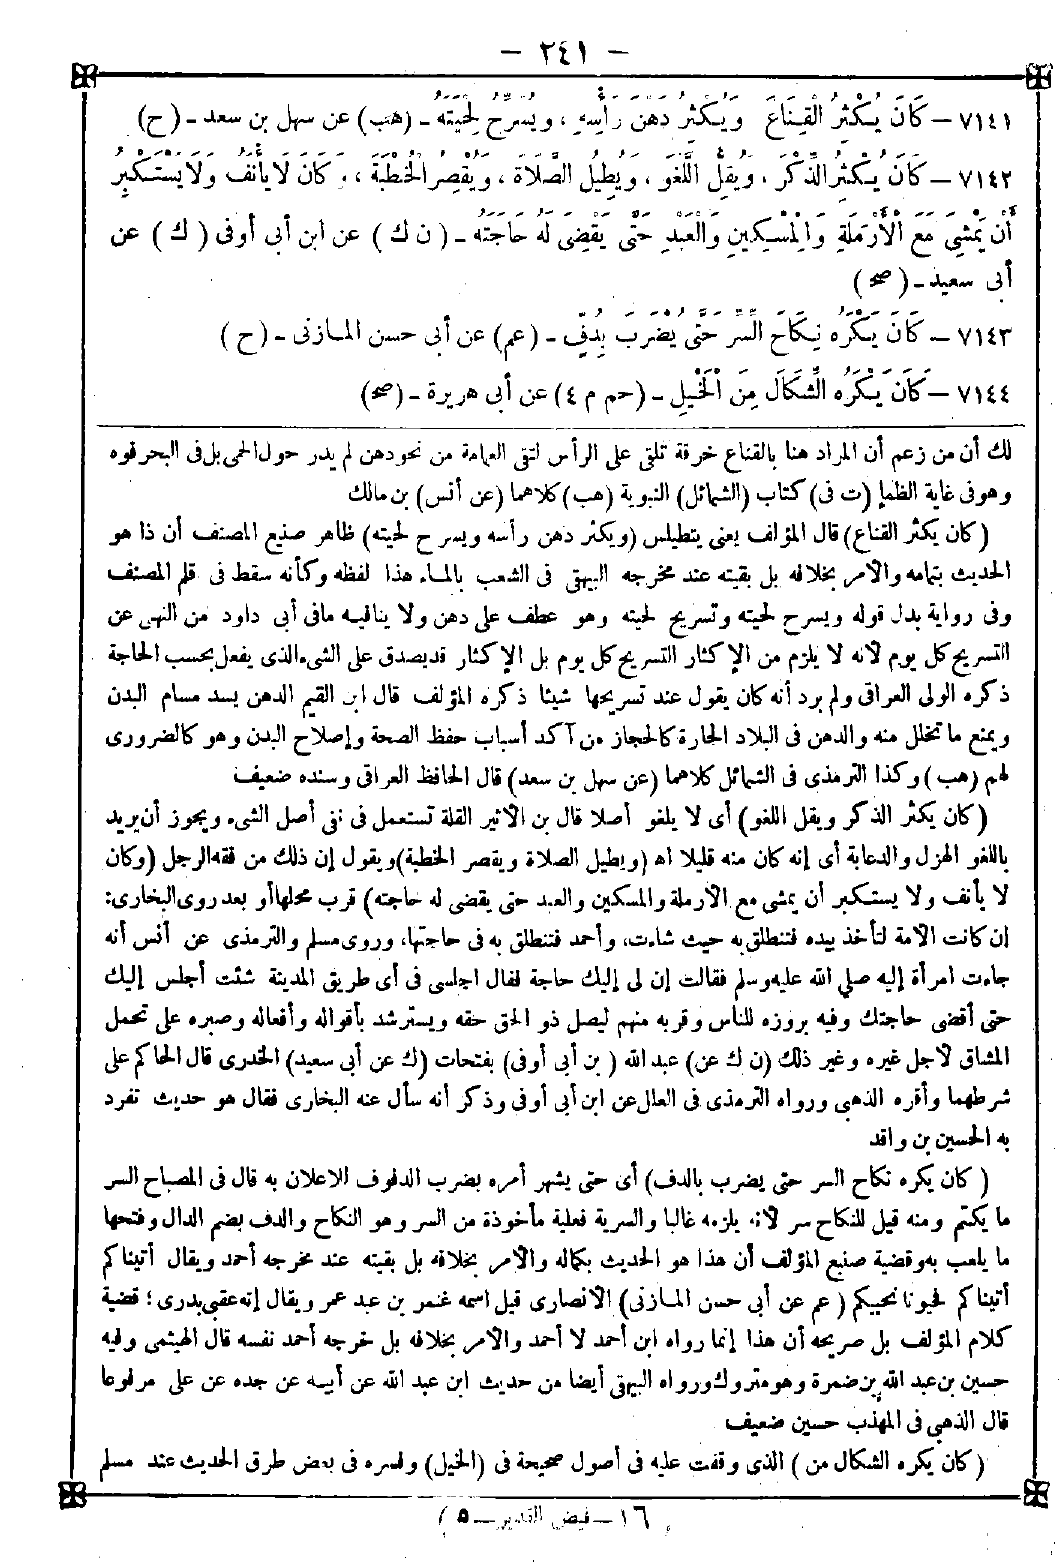 — ٢٤١ —
٧١٤١ — كَانَ يُكْثِرُ الْقِنَاعَ وَيُكْثِرُ دَهْنَ رَأْسِهِ، وَيُسَرِّحُ لِحْيَتَهُ - (هب) عن سهل بن سعد - (ح)
٧١٤٢ — كَانَ يُكْثِرُ الذِّكْرَ، وَيُقِلُّ اللَّغْوَ، وَيُطِيلُ الصَّلَاةَ، وَيُقْصِرُ الْخُطْبَةَ، وَكَانَ لَا يَأْنَفُ وَلَا يَسْتَكْبِرُ
أَنْ يَمْشِيَ مَعَ الْأَرْمَلَةِ وَالْمِسْكِينِ وَالْعَبْدِ حَتَّى يَقْضِيَ لَهُ حَاجَتَهُ - (ن ك) عن ابن أبى أوفى (ك) عن
أبى سعيد - (صح)
٧١٤٣ — كَانَ يَكْرَهُ نِكَاحَ السِّرِّ حَتَّى يُضْرَبَ بِدُفٍّ - (عم) عن أبى حسن المازنى - (ح)
٧١٤٤ — كَانَ يَكْرَهُ الشِّكَالَ مِنَ الْخَيْلِ - (حم م ٤) عن أبى هريرة - (صح)
لك أن من زعم أن المراد هنا بالقناع خرقة تلقى على الرأس لتقى العمامة من نحو دهن لم يدر حول الحمى بل فى البحر فوه
وهو فى غاية الظمإ (ت فى) كتاب (الشمائل) النبوية (هب) كلاهما (عن أنس) بن مالك
(كان يكثر القناع) قال المؤلف يعنى يتطيلس (ويكثر دهن رأسه ويسرح لحيته) ظاهر صنيع المصنف أن ذا هو
الحديث بتمامه والأمر بخلافه بل بقيته عند مخرجه البيهقى فى الشعب بالماء هذا لفظه وكأنه سقط فى قلم المصنف
وفى رواية بدل قوله ويسرح لحيته وتسريح لحيته وهو عطف على دهن ولا ينافيه مافى أبى داود من النهى عن
التسريح كل يوم لأنه لا يلزم من الإكثار التسريح كل يوم بل الإكثار قد يصدق على الشىء الذى يفعل بحسب الحاجة
ذكره الولى العراقى ولم يرد أنه كان يقول عند تسريحها شيئا ذكره المؤلف قال ابن القيم الدهن يسد مسام البدن
ويمنع ما تخلل منه والدهن فى البلاد الحارة كالحجاز من آكد أسباب حفظ الصحة وإصلاح البدن وهو كالضرورى
لهم (هب) وكذا الترمذى فى الشمائل كلاهما (عن سهل بن سعد) قال الحافظ العراقى وسنده ضعيف
(كان يكثر الذكر ويقل اللغو) أى لا يلغو أصلا قال بن الأثير القلة تستعمل فى نفى أصل الشىء ويجوز أن يريد
باللغو الهزل والدعابة أى إنه كان منه قليلا اه (ويطيل الصلاة ويقصر الخطبة) ويقول إن ذلك من فقه الرجل (وكان
لا يأنف ولا يستكبر أن يمشى مع الأرملة والمسكين والعبد حتى يقضى له حاجته) قرب محلها أو بعد روى البخارى:
إن كانت الأمة لتأخذ بيده فتنطلق به حيث شاءت، وأحمد فتنطلق به فى حاجتها، وروى مسلم والترمذى عن أنس أنه
جاءت امرأة إليه صلى الله عليه وسلم فقالت إن لى إليك حاجة فقال اجلسى فى أى طريق المدينة شئت أجلس إليك
حتى أقضى حاجتك وفيه بروزه للناس وقربه منهم ليصل ذو الحق حقه ويسترشد بأقواله وأفعاله وصبره على تحمل
المشاق لأجل غيره وغير ذلك (ن ك عن) عبد الله (بن أبى أوفى) بفتحات (ك عن أبى سعيد) الخدرى قال الحاكم على
شرطهما وأقره الذهبى ورواه الترمذى فى العلل عن ابن أبى أوفى وذكر أنه سأل عنه البخارى فقال هو حديث تفرد
به الحسين بن واقد
(كان يكره نكاح السر حتى يضرب بالدف) أى حتى يشهر أمره بضرب الدفوف للاعلان به قال فى المصباح السر
ما يكتم ومنه قيل للنكاح سر لأنه يلزمه غالبا والسرية فعلية مأخوذة من السر وهو النكاح والدف بضم الدال وفتحها
ما يلعب به وقضية صنيع المؤلف أن هذا هو الحديث بكماله والأمر بخلافه بل بقيته عند مخرجه أحمد ويقال أتيناكم
أتيناكم فحيونا نحييكم (عم عن أبى حسن المازنى) الأنصارى قيل اسمه غنم بن عبد عمر ويقال إنه عقبى بدرى؛ قضية
كلام المؤلف بل صريحه أن هذا إنما رواه ابن أحمد لا أحمد والأمر بخلافه بل خرجه أحمد نفسه قال الهيثمى وفيه
حسين بن عبد الله بن ضمرة وهو متروك ورواه البيهقى أيضا من حديث ابن عبد الله عن أبيه عن جده عن على مرفوعا
قال الذهبى فى المهذب حسين ضعيف
(كان يكره الشكال من) الذى وقفت عليه فى أصول صحيحة فى (الخيل) وفسره فى بعض طرق الحديث عند مسلم
(١٦ — فيض القدير — ٥)